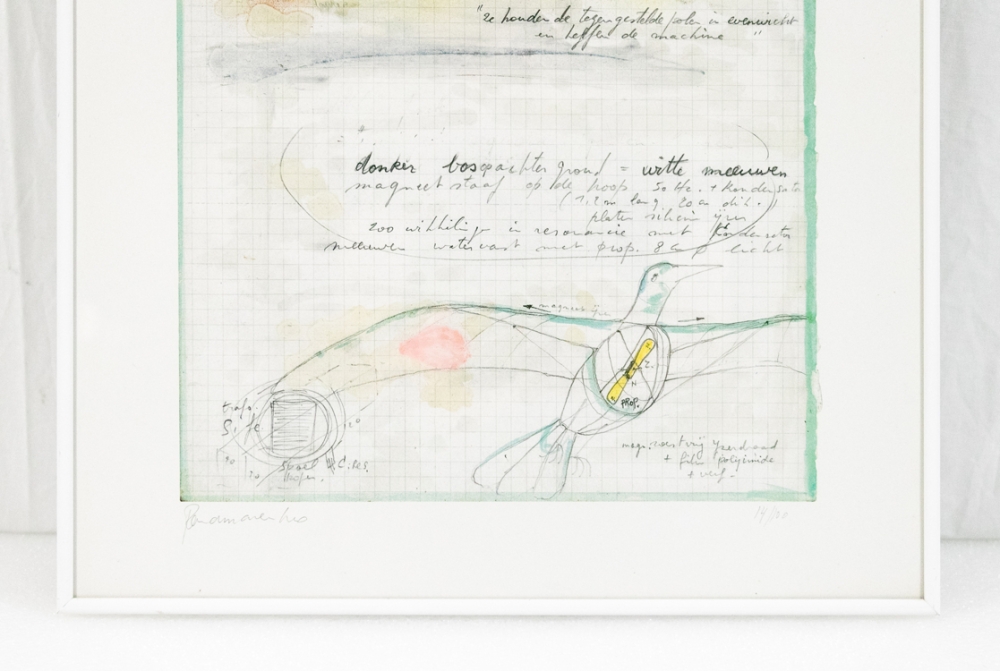 "ze houden de tegengestelde polen in evenwicht
en heffen de machine "
donker bosepachter grond = witte meeuwen
magneet staaf op de hoop 50 Hz. + Kondensator
(1,2 m lang, 20 cm dik.)
platen silicium ijzer
200 wikkeling in resonancie met kondensator
meeuwen watervast met prop. 8 cm ø licht
magneet ijzer
Z.
N
PROP.
trafo.
Si fe
20
30
20
R.C. ses.
magn. roestvrij ijzerdraad
+ film polyimide
+ verf.
Panamarenko